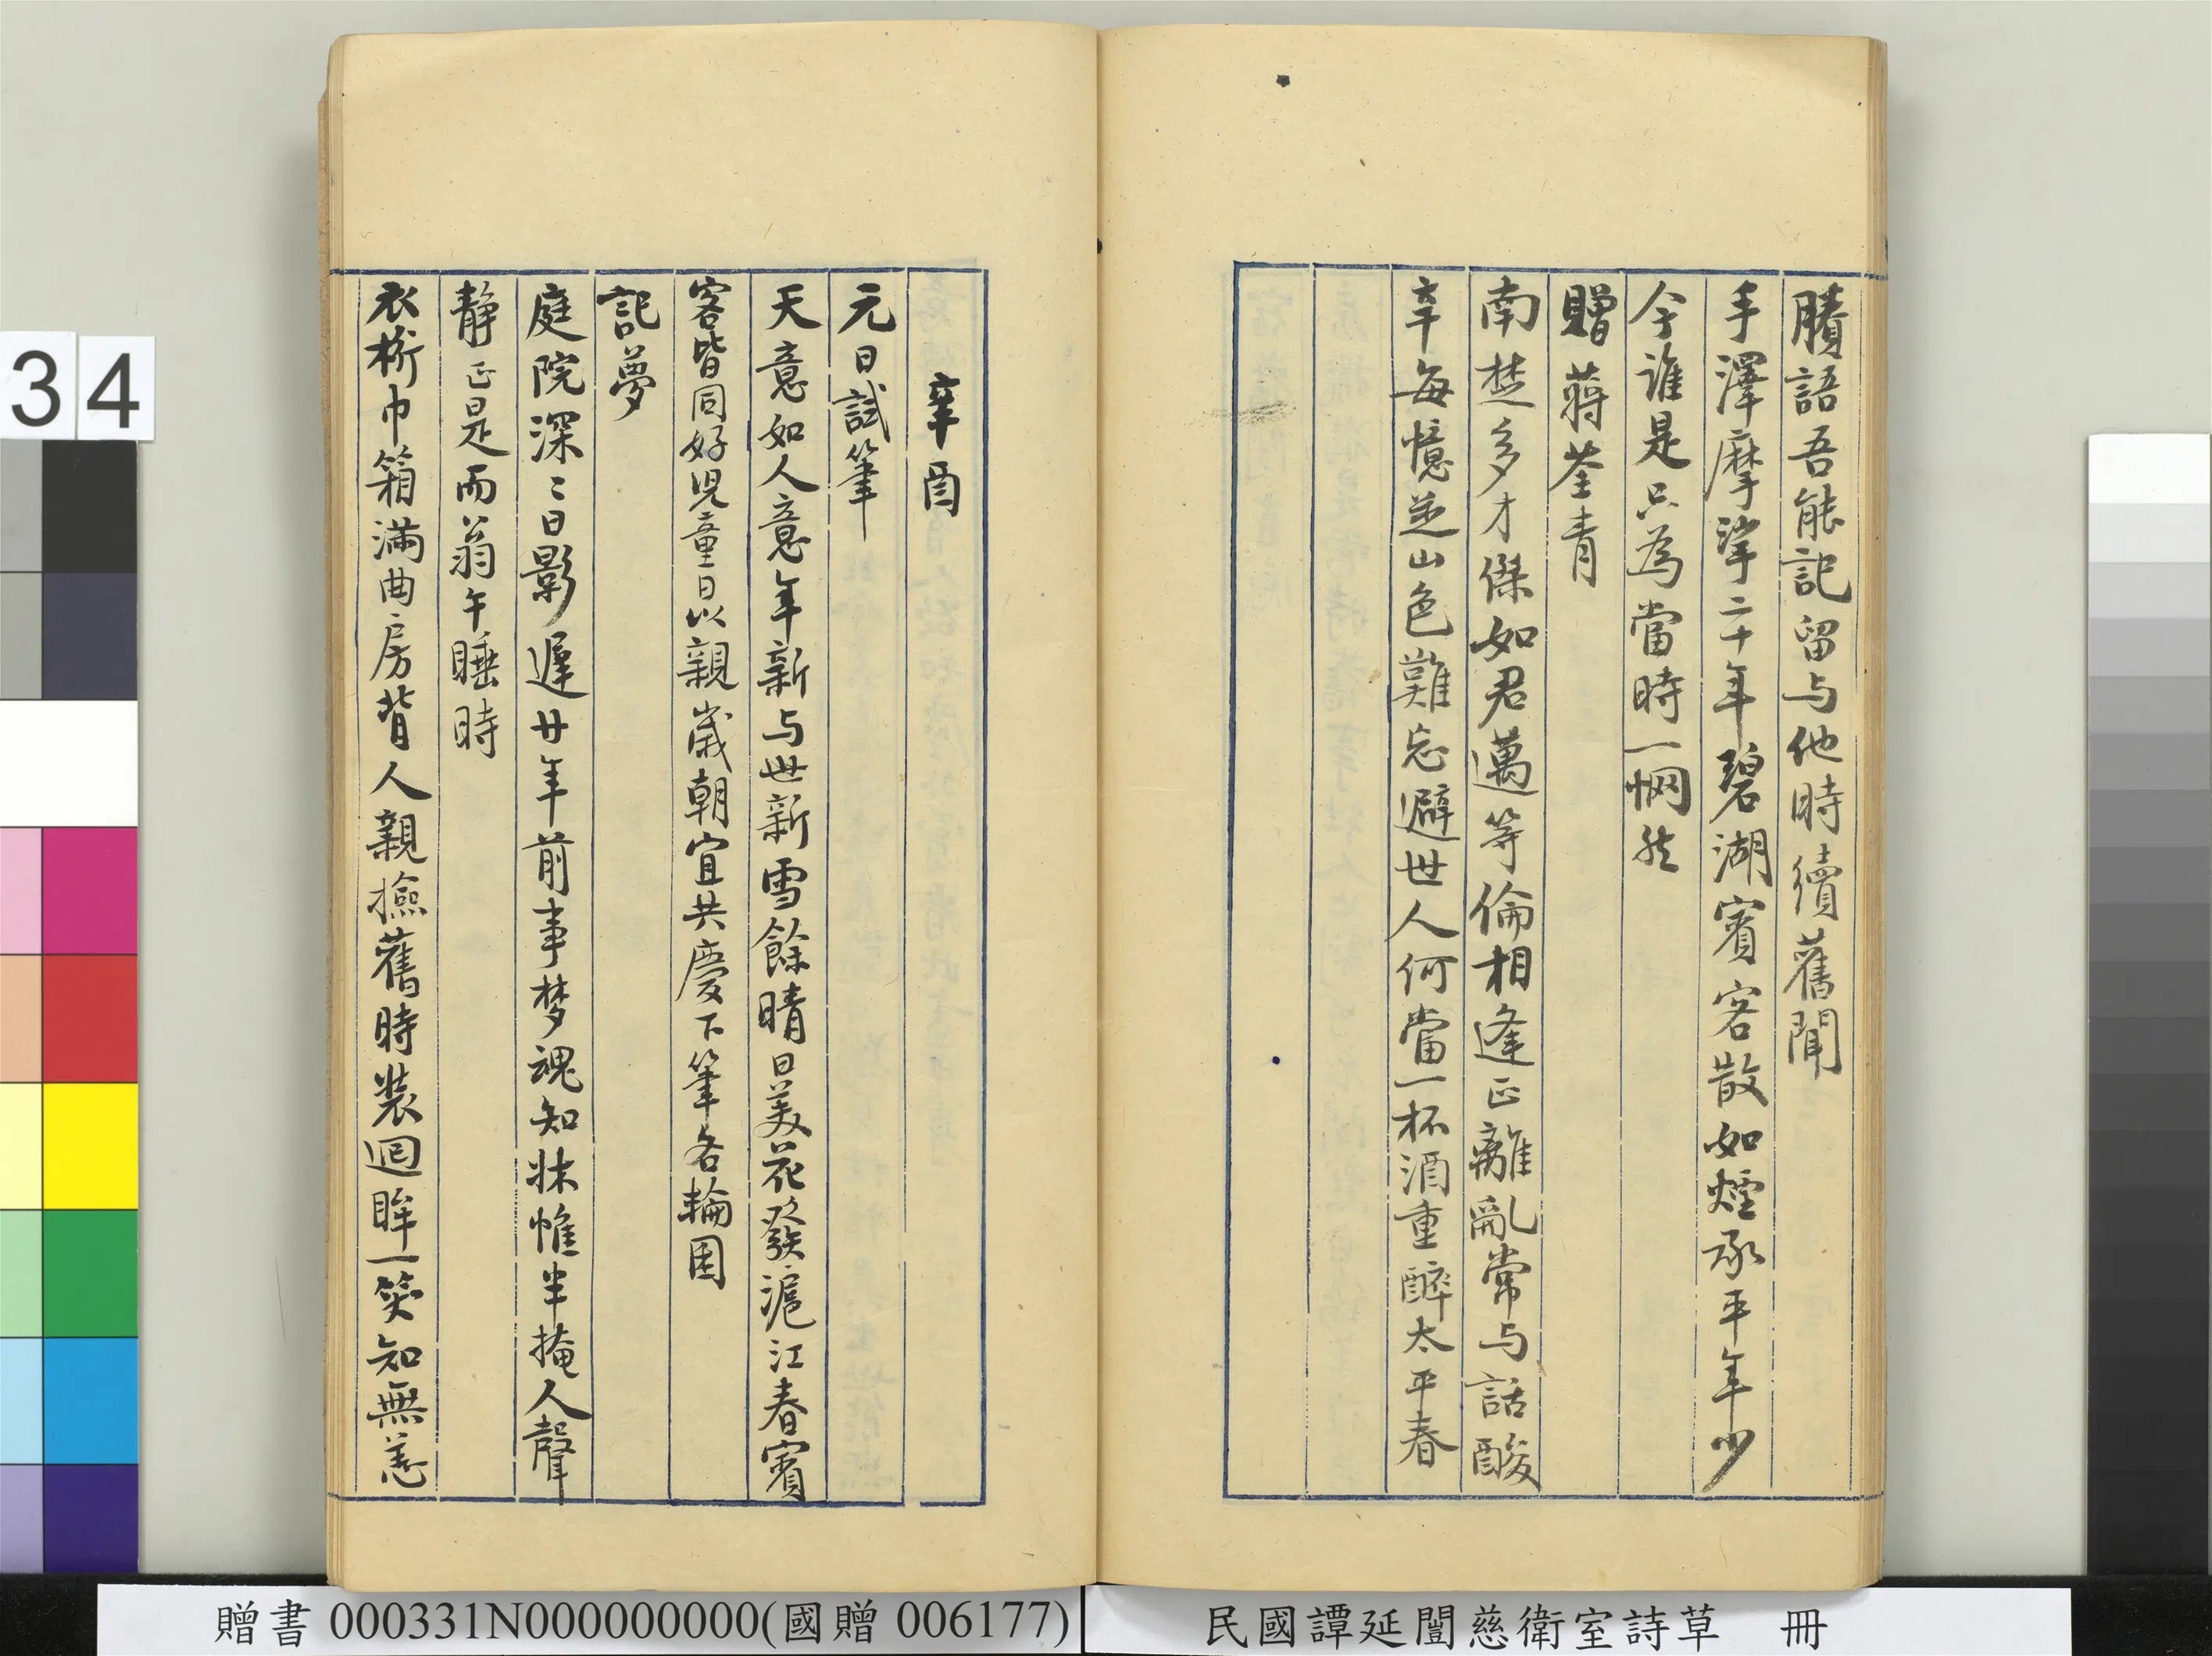 賸語吾能記留与他時續舊聞
手澤摩挲二十年碧湖賓客散如煙承平年少
今誰是只為當時一惘然
贈蔣荃青
南楚多才傑如君邁等倫相逢正離亂常与話酸
辛每憶芝山色難忘避世人何當一杯酒重醉太平春
辛酉
元日試筆
天意如人意年新与世新雪餘晴日美花發滬江春賓
客皆同好児童日以親歲朝宜共慶下筆各輪囷
記夢
庭院深〻日影遲廿年前事梦魂知牀帷半掩人聲
静正是而翁午睡時
衣桁巾箱滿曲房背人親撿舊時裝迴眸一笑知無恙
34
贈書 000331N000000000(國贈 006177)
民國譚延闓慈衛室詩草 冊